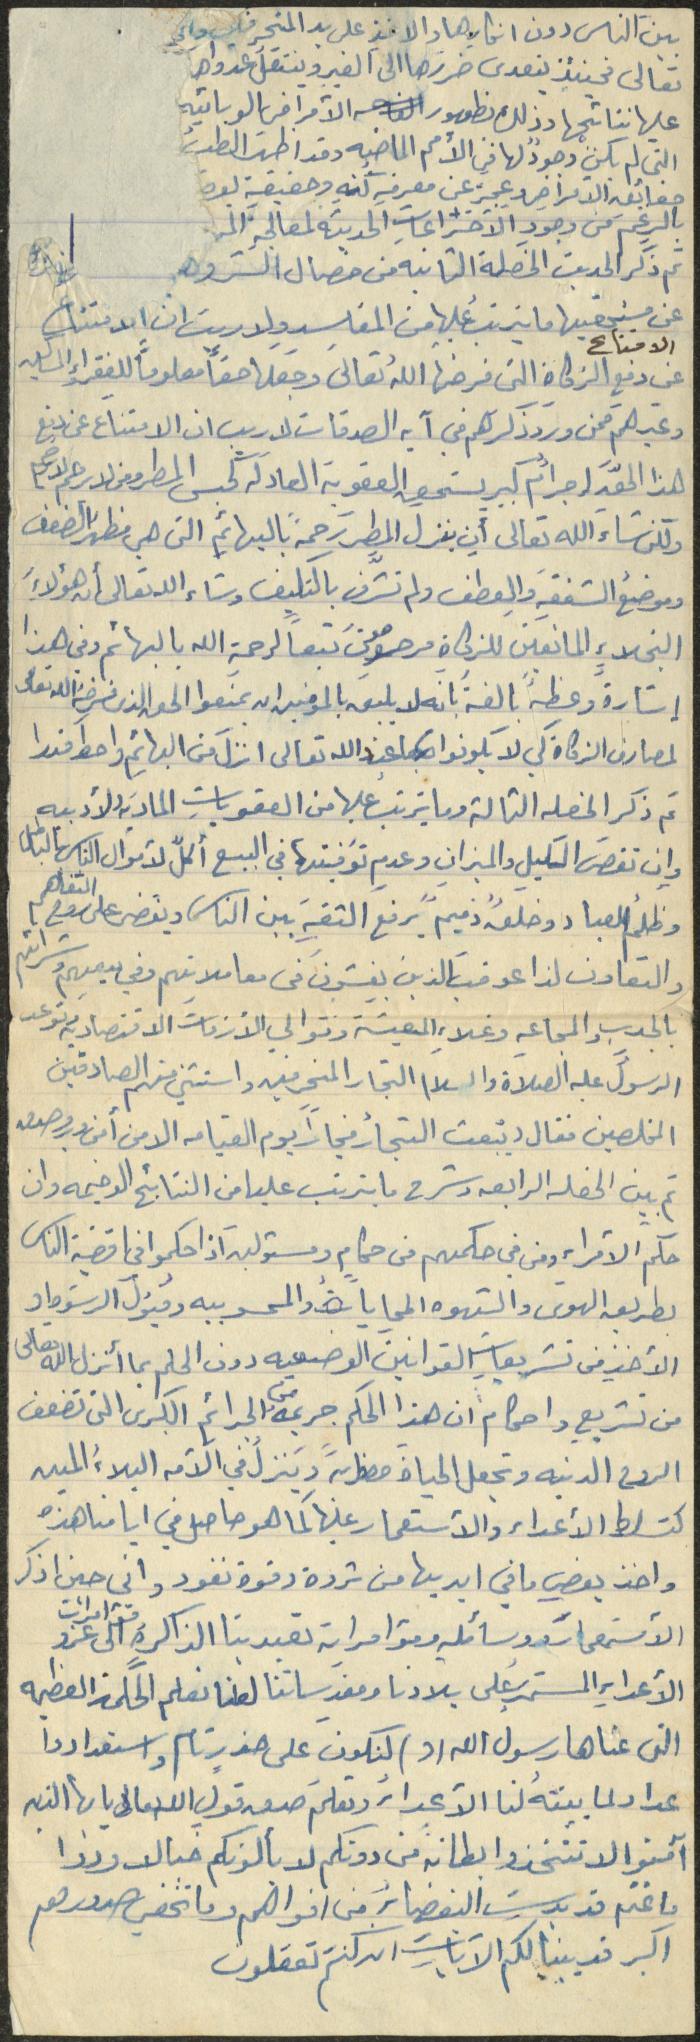 بين الناس دون انكارها والاخذ على يد المنحرفين
تعالى فحينئذ يتعدى ضررها الى الغير وينتقل
عليها نتائجها وذلك بظهور الأمراض الوبائيه
التي لم يكن وجودٌ لها في الأمم الماضيه وقد اظهر الطب
حقائق الأمراض وعجز عن معرفةِ كُنهِ وحقيقةِ
بالرغم من وجودِ الأختراعاتِ الحديثه لمعالجةِ
ثم ذكر الحديث الخصلة الثانيه من خصال
عن مستحقيها ما يترتب عليها من المفاسد ولا ريب ان الامتناع
الامتناع
عن دفع الزكاة التي فرضها الله تعالى وجعلها حقاً معلوماً للفقراءِ والمساكين
وغيرهم ممن ورد ذكرهم في آية الصدقات لا ريب ان الامتناع عن دفع
هذا الحقّ لجرامٌ كبير يستحق العقوبة العادلة كحبس المطر ومن لا يرحم لا يُرحم
ولكن شاء الله تعالى أن ينزل المطر رحمةً بالبهائم التي هي مظهر الضعف
وموضعُ الشفقةِ والعطف ولم تشرَّف بالتكليف وشاء الله تعالى أن هؤلاءِ
البخلاءِ المانعين للزكاةِ مرحومون تبعاً لرحمة الله بالبهائم وفي هذا
إشارةً وعظةً بالغةً بأنه لا يليق بالمؤمنين ان يمنعوا الحق الذي فرضه الله تعالى
لمصارف الزكاة كي لا يكونوا عند الله تعالى انزل من البهائم واحط قدرا
ثم ذكر الخصله الثالثة وما يترتب عليها من العقوباتِ الماديةِ والأدبيه
وان نقصَ المكيلِ والميزانِ وعدمِ توفيتها في البيع أكلٌ لأموال الناس بالباطل
وظلمٌ للعباد وخلقٌ ذميمٌ يرفع الثقةَ بين الناس ويقضي على روح التفاهم
والتعاون لذا عوقب الذين يغشّون في معاملاتهم وفي بيعهم وشرائهم
بالجدبِ والمجاعهِ وغلاءِ المعيشة وتوالي الأزماتِ الاقتصاديه وتوعد
الرسولُ عليه الصلاة والسلام التجار المنحرفين واستثنى منهم الصادقين
المخلصين فقال (يُبعث التجارُ فجاراً يوم القيامه الا من أمن وبر وصدق
ثم بين الخصله الرابعه وشرح ما يترتب عليها من النتائج الوخيمه وان
حكم الأمراء ومن في حكمهم من حكامٍ ومسئولين اذا حكموا في اقضية الناس
بطريق الهوى والشهوه والمحاباةُ والمحسوبيه وقبول الرشوةِ او
الأخذ من تشريعاتِ القوانين الوضعيه دون الحكم بما أنزل الله تعالى
من تشريعٍ واحكام ان هذا الحكم جريمة من الجرائم الكبرى التي تضعف
الروح الدينيه وتجعل الحياة مضطربةً ويَنزلُ في الأمه البلاءُ المبين
كتسلط الأعداء والأستعمار عليها كما هو حاصل في ايامنا هذه
واخذ بعض ما في ايديها من ثروة وقوة نفوذ واني حين اذكر
الأستعمار ووسائله ومؤامراته تعيد بنا الذاكرة الى غزو
مؤامرات
الأعداء المستمر على بلادنا ومقدساتنا لعلنا نعلم الحكمة العظيمه
التي عناها رسول الله (ص) لنكون على حذرٍ تام واستعدادوا
عداد لما يبيته لنا الأعداء ونعلم صدق قول الله تعالى يا أيها الذين
آمنوا لا تتخذوا بطانة من دونكم لا يألونكم خبالا ودوا
ما عنتم قد بدت البغضاءُ من افواههم وما تخفي صدورهم
اكبر قد بينا لكم الآيات ان كنتم تعقلون